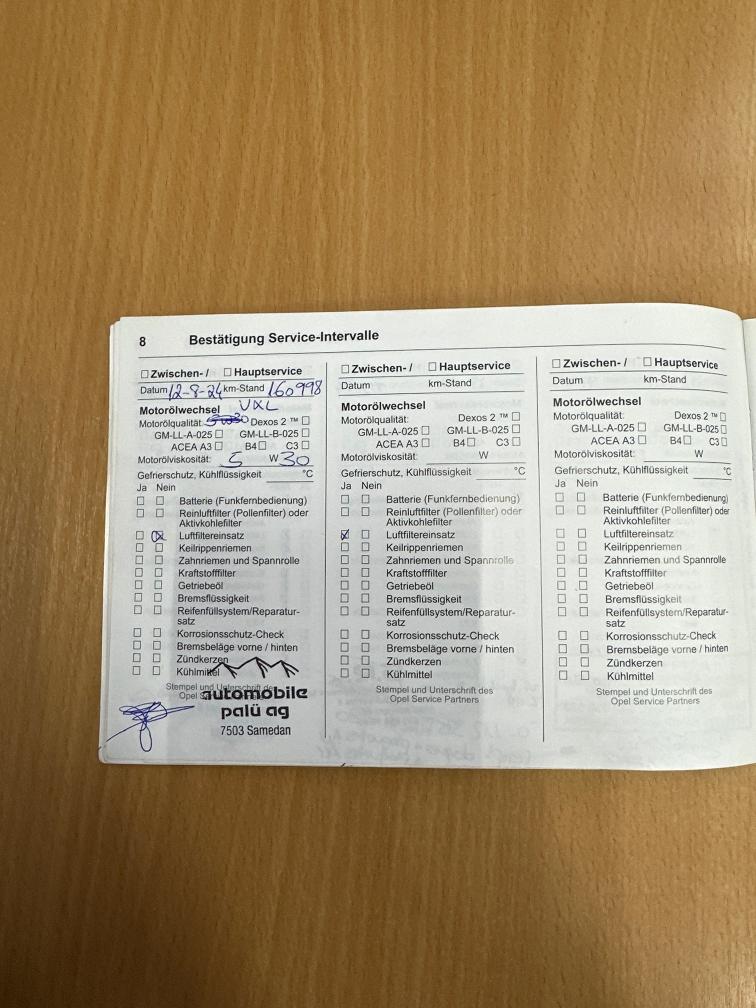 8 Bestätigung Service-Intervalle
☐ Zwischen- / ☐ Hauptservice
Datum 12-8-24 km-Stand 160998
Motorölwechsel VXL
Motorölqualität: Dexos 2 ™ ☐
GM-LL-A-025 ☐ GM-LL-B-025 ☐
ACEA A3 ☐ B4 ☐ C3 ☐
Motorölviskosität: 5 W 30
Gefrierschutz, Kühlflüssigkeit °C
Ja Nein
☐ ☐ Batterie (Funkfernbedienung)
☐ ☐ Reinluftfilter (Pollenfilter) oder
Aktivkohlefilter
☐ ☒ Luftfiltereinsatz
☐ ☐ Keilrippenriemen
☐ ☐ Zahnriemen und Spannrolle
☐ ☐ Kraftstofffilter
☐ ☐ Getriebeöl
☐ ☐ Bremsflüssigkeit
☐ ☐ Reifenfüllsystem/Reparatur-
satz
☐ ☐ Korrosionsschutz-Check
☐ ☐ Bremsbeläge vorne / hinten
☐ ☐ Zündkerzen
☐ ☐ Kühlmittel
Stempel und Unterschrift des
Opel
automobile
palü ag
7503 Samedan
☐ Zwischen- / ☐ Hauptservice
Datum km-Stand
Motorölwechsel
Motorölqualität: Dexos 2 ™ ☐
GM-LL-A-025 ☐ GM-LL-B-025 ☐
ACEA A3 ☐ B4 ☐ C3 ☐
Motorölviskosität: W
Gefrierschutz, Kühlflüssigkeit °C
Ja Nein
☐ ☐ Batterie (Funkfernbedienung)
☐ ☐ Reinluftfilter (Pollenfilter) oder
Aktivkohlefilter
☒ ☐ Luftfiltereinsatz
☐ ☐ Keilrippenriemen
☐ ☐ Zahnriemen und Spannrolle
☐ ☐ Kraftstofffilter
☐ ☐ Getriebeöl
☐ ☐ Bremsflüssigkeit
☐ ☐ Reifenfüllsystem/Reparatur-
satz
☐ ☐ Korrosionsschutz-Check
☐ ☐ Bremsbeläge vorne / hinten
☐ ☐ Zündkerzen
☐ ☐ Kühlmittel
Stempel und Unterschrift des
Opel Service Partners
☐ Zwischen- / ☐ Hauptservice
Datum km-Stand
Motorölwechsel
Motorölqualität: Dexos 2 ™ ☐
GM-LL-A-025 ☐ GM-LL-B-025 ☐
ACEA A3 ☐ B4 ☐ C3 ☐
Motorölviskosität: W
Gefrierschutz, Kühlflüssigkeit °C
Ja Nein
☐ ☐ Batterie (Funkfernbedienung)
☐ ☐ Reinluftfilter (Pollenfilter) oder
Aktivkohlefilter
☐ ☐ Luftfiltereinsatz
☐ ☐ Keilrippenriemen
☐ ☐ Zahnriemen und Spannrolle
☐ ☐ Kraftstofffilter
☐ ☐ Getriebeöl
☐ ☐ Bremsflüssigkeit
☐ ☐ Reifenfüllsystem/Reparatur-
satz
☐ ☐ Korrosionsschutz-Check
☐ ☐ Bremsbeläge vorne / hinten
☐ ☐ Zündkerzen
☐ ☐ Kühlmittel
Stempel und Unterschrift des
Opel Service Partners